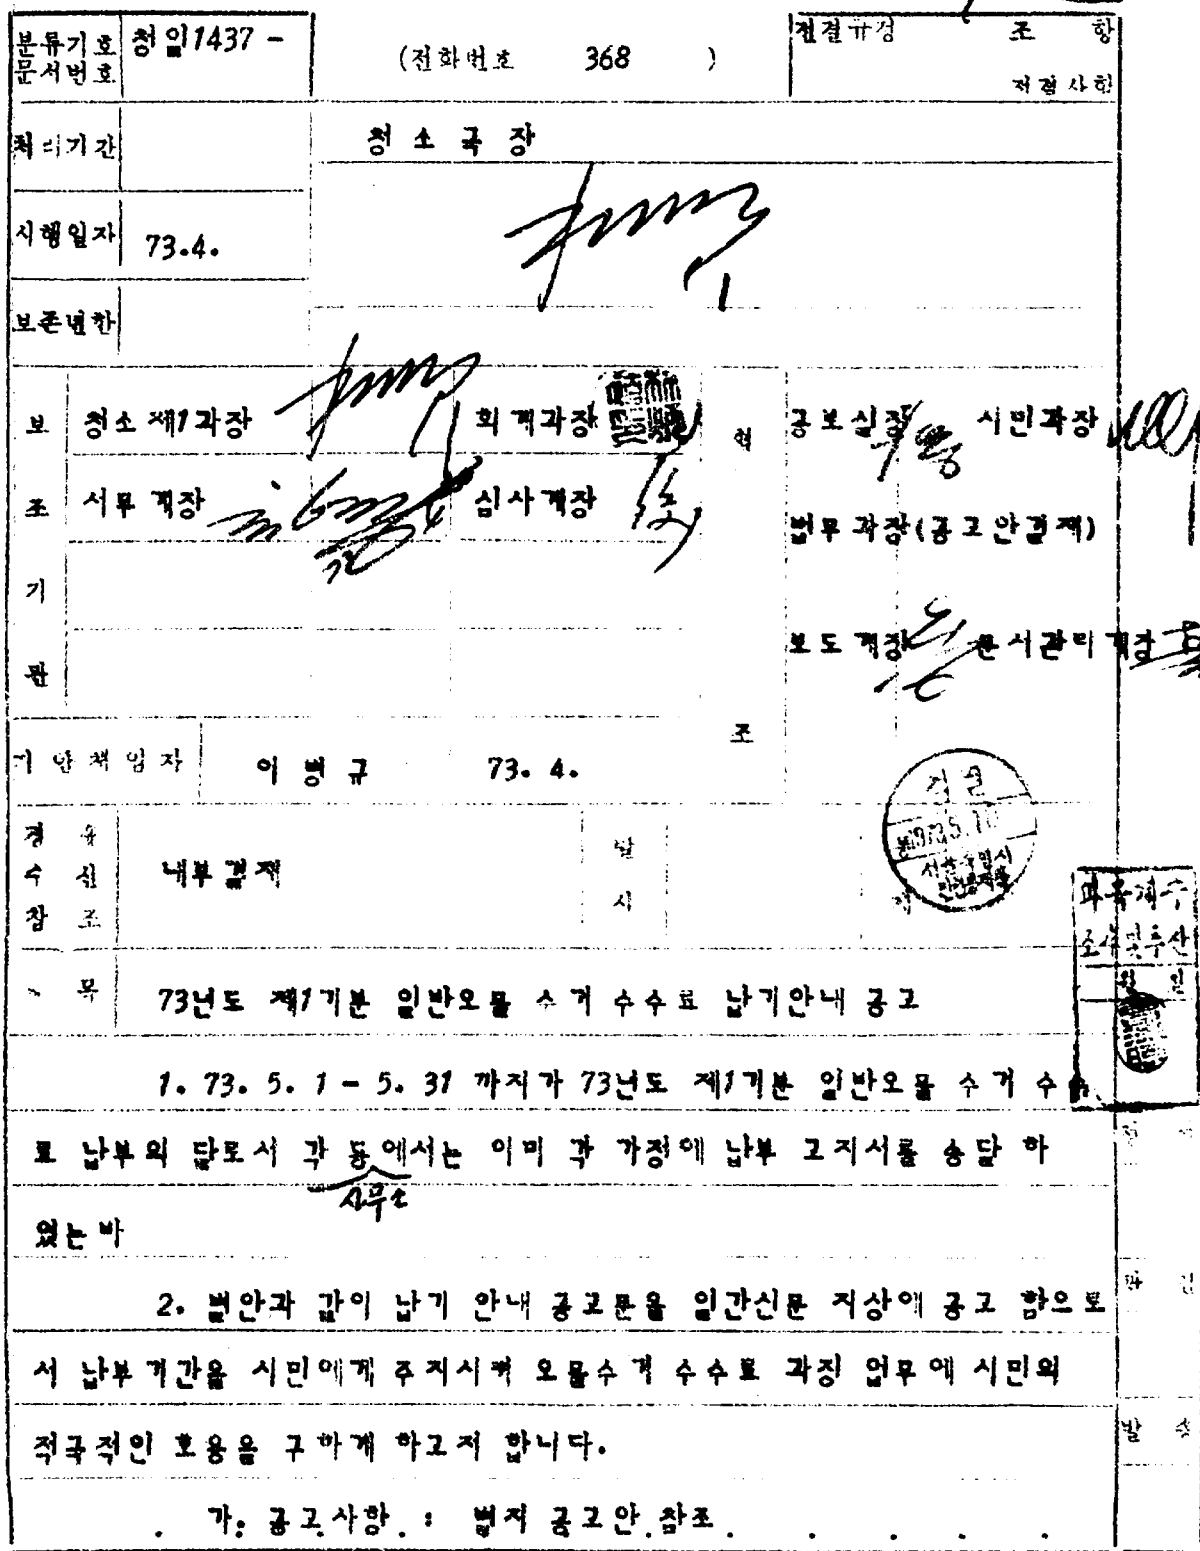 분류기호
문서번호
청일1437-
(전화번호 368 )
전결규정 조 항
전결사항
처리기간
청소국장
시행일자 73.4.
보존년한
보조기관
청소제1과장
회계과장
서무계장
심사계장
협조
공보실장
시민과장
법무과장(공고안결재)
보도계장
문서관리계장
기안책임자 이병규 73. 4.
경유
수신
참조
내부결재
발시
73년도 제1기분 일반오물 수거 수수료 납기안내 공고
1. 73. 5. 1 - 5. 31 까지가 73년도 제1기분 일반오물 수거 수수
료 납부의 달로서 각 동에서는 이미 각 가정에 납부 고지서를 송달 하
사무소
였는바
2. 별안과 같이 납기 안내 공고문을 일간신문 지상에 공고 함으로
서 납부기간을 시민에게 주지시켜 오물수거 수수료 과징 업무에 시민의
적극적인 호응을 구하게 하고저 합니다.
가. 공고사항 : 별지 공고안 참조
발송